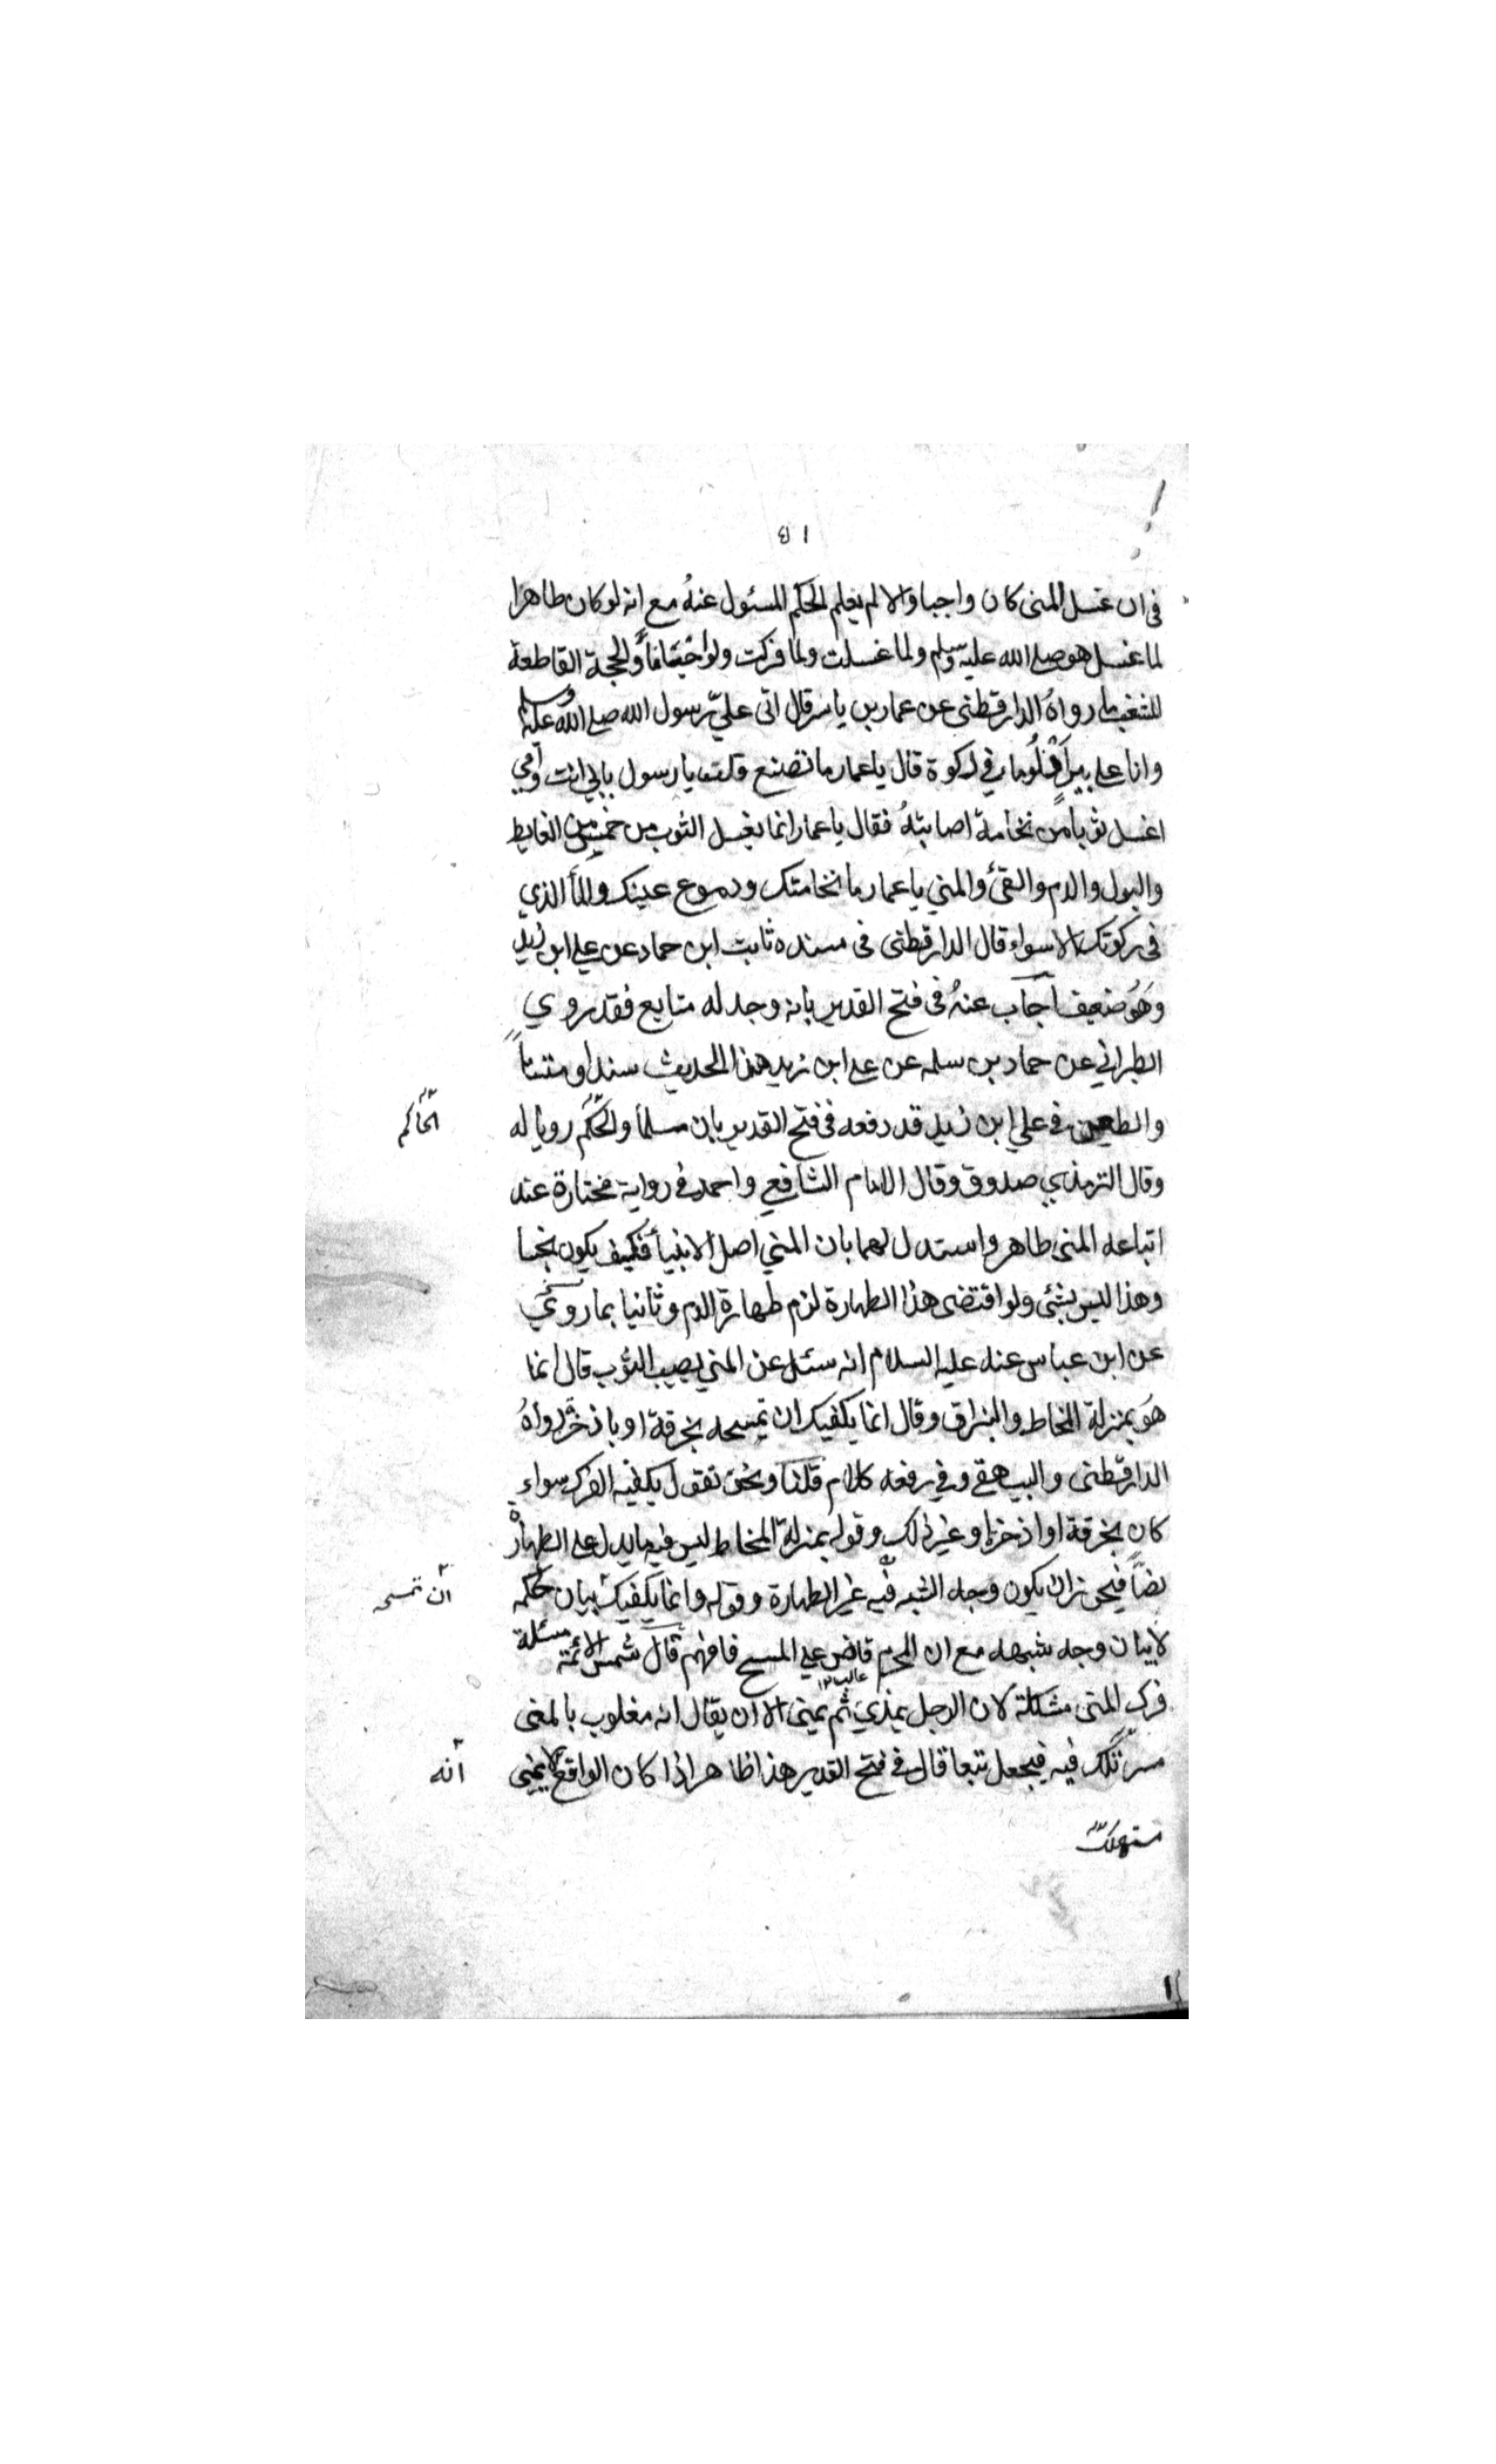 ١٥
فى ان غسل المنى كان واجبا والا لم يعلم الحكم المسئول عنهُ مع انه لو كان طاهرا
لما غسل هو صلى الله عليه وسلم ولما غسلت ولما فركت والحجة القاطعة
ما رواهُ الدارقطنى عن عمار بن ياسر قال اتى عليّ رسول الله صلى الله عليه وسلم
وانا على بير فى ركوة قال يا عمار ما تصنع قلت يا رسول بابي انت وامي
اغسل ثوبا من نخامة اصابتهُ فقال يا عمار انما يغسل الثوب من خمس من الغايط
والبول والدم والقئ والمني يا عمار ما نخامتك ودموع عينك والمأ الذي
فى ركوتك الا سواء قال الدارقطنى فى سنده ثابت ابن حماد عن علي ابن زيد
وهُو ضعيف اجاب عنهُ فى فتح القدير بانه وجد له متابع فقد روي
الطبراني عن حماد بن سلمه عن على ابن زيد هذا الحديث سندا ومتناً
والطعن فى علي ابن زيد قد دفعه فى فتح القدير بان مسلما والحكم رويا له
الحاكم
وقال الترمذي صدوق وقال الامام الشافعي واحمد فى رواية مختارة عند
اتباعه المنى طاهر واستدل لهما بان المني اصل الانبيأ فكيف يكون نجسا
وهذا ليس بشئ ولو اقتضى هذا الطهارة لزم طهارة الدم وثانيا بما روي
عن ابن عباس عنه عليه السلام انه سئل عن المني يصيب الثوب قال انما
هو بمنزلة المخاط والبزاق وقال انما يكفيك ان تمسحه بخرقة او باذخر رواهُ
الدارقطنى والبيهقى وفي رفعه كلام قلنا ونحن نقول يكفيه الفرك سواء
كان بخرقة او اذخر او غير ذلك وقوله بمنزلة المخاط ليس فيه ما يدل على الطهارة
نصاً فيجوز ان يكون وجه الشبه فيه غير الطهارة وقوله وانما يكفيك بيان حكمه
ان تمسحه
لا بيان وجه شبهه مع ان المحرم قاض على المبيح فافهم قال شمس الائمة مسئلة
فرك المنى مشكلة لان الرجل يمذي ثم يمنى الا ان يقال انه مغلوب بالمنى
مستهلك فيه فيجعل تبعا قال فى فتح القدير هذا ظاهر اذا كان الواقع لا يمنى
انه
مستهلك